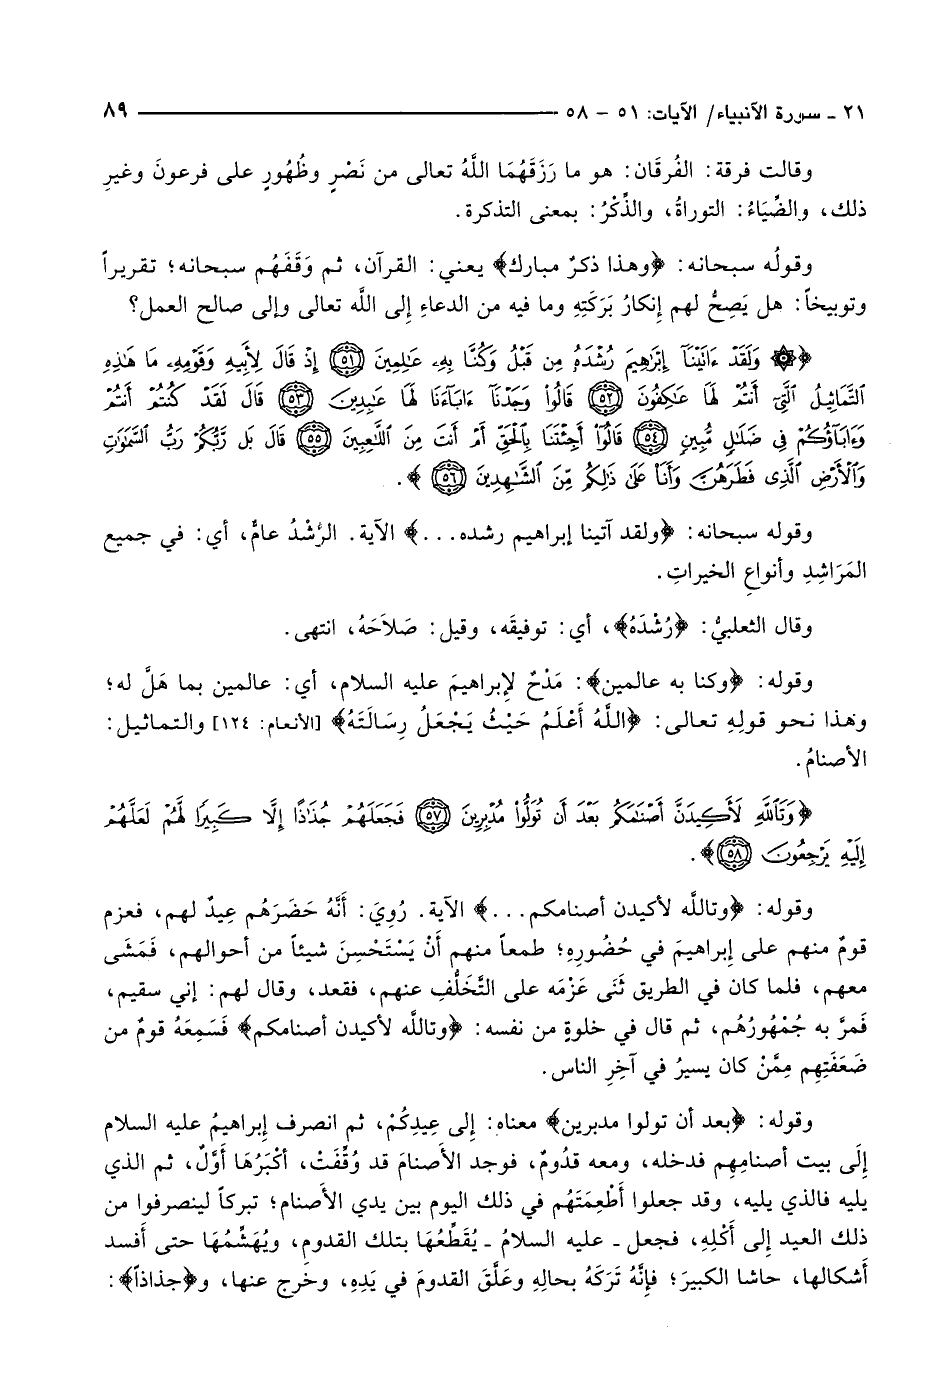 ٢١ ـ سورة الأنبياء/ الآيات: ٥١ - ٥٨ ٨٩
وقالت فرقة: الفُرقَان: هو ما رَزَقَهُمَا اللَّهُ تعالى من نَصْرٍ وظُهُورٍ على فرعونَ وغيرِ
ذلك، والضِّيَاءُ: التوراةُ، والذِّكْرُ: بمعنى التذكرة.
وقولُه سبحانه: ﴿وهذا ذكرٌ مبارك﴾ يعني: القرآن، ثم وَقَفَهُم سبحانه؛ تقريراً
وتوبيخاً: هل يَصِحُّ لهم إِنكارُ بَرَكَتِهِ وما فيه من الدعاءِ إِلى اللَّه تعالى وإلى صالح العمل؟
﴿۞ وَلَقَدْ ءَاتَيْنَآ إِبْرَٰهِيمَ رُشْدَهُۥ مِن قَبْلُ وَكُنَّا بِهِۦ عَٰلِمِينَ ﴿٥١﴾ إِذْ قَالَ لِأَبِيهِ وَقَوْمِهِۦ مَا هَٰذِهِ
ٱلتَّمَاثِيلُ ٱلَّتِىٓ أَنتُمْ لَهَا عَٰكِفُونَ ﴿٥٢﴾ قَالُوا۟ وَجَدْنَآ ءَابَآءَنَا لَهَا عَٰبِدِينَ ﴿٥٣﴾ قَالَ لَقَدْ كُنتُمْ أَنتُمْ
وَءَابَآؤُكُمْ فِى ضَلَٰلٍ مُّبِينٍ ﴿٥٤﴾ قَالُوٓا۟ أَجِئْتَنَا بِٱلْحَقِّ أَمْ أَنتَ مِنَ ٱللَّٰعِبِينَ ﴿٥٥﴾ قَالَ بَل رَّبُّكُمْ رَبُّ ٱلسَّمَٰوَٰتِ
وَٱلْأَرْضِ ٱلَّذِى فَطَرَهُنَّ وَأَنَا۠ عَلَىٰ ذَٰلِكُم مِّنَ ٱلشَّٰهِدِينَ ﴿٥٦﴾ ﴾.
وقوله سبحانه: ﴿ولقد آتينا إبراهيم رشده...﴾ الآية. الرُّشْدُ عامٌّ، أي: في جميع
المَرَاشِدِ وأنواعِ الخيراتِ.
وقال الثعلبيُّ: ﴿رُشْدَهُ﴾، أي: توفيقَه، وقيل: صَلاَحَهُ، انتهى.
وقوله: ﴿وكنا به عالمين﴾: مَدْحٌ لإبراهيمَ عليه السلام، أي: عالمين بما هَلَّ له؛
وهذا نحو قولِهِ تعالى: ﴿اللَّهُ أَعْلَمُ حَيْثُ يَجْعَلُ رِسَالَتَهُ﴾ [الأنعام: ١٢٤] والتماثيل:
الأصنامُ.
﴿وَتَٱللَّهِ لَأَكِيدَنَّ أَصْنَٰمَكُم بَعْدَ أَن تُوَلُّوا۟ مُدْبِرِينَ ﴿٥٧﴾ فَجَعَلَهُمْ جُذَٰذًا إِلَّا كَبِيرًا لَّهُمْ لَعَلَّهُمْ
إِلَيْهِ يَرْجِعُونَ ﴿٥٨﴾﴾.
وقوله: ﴿وتاللَّه لأكيدن أصنامكم...﴾ الآية. رُوِيَ: أَنَّهُ حَضَرَهُم عِيدٌ لهم، فعزم
قومٌ منهم على إِبراهيمَ في حُضُورِهِ؛ طمعاً منهم أَنْ يَسْتَحْسِنَ شيئاً من أحوالهم، فَمَشَى
معهم، فلما كان في الطريق ثَنَى عَزْمَه على التَّخَلُّفِ عنهم، فقعد، وقال لهم: إني سقيم،
فَمرَّ به جُمْهُورُهُم، ثم قال في خلوةٍ من نفسه: ﴿وتاللَّه لأكيدن أصنامكم﴾ فَسَمِعَهُ قومٌ من
ضَعَفَتِهِم مِمَّنْ كان يسيرُ في آخِرِ الناس.
وقوله: ﴿بعد أن تولوا مدبرين﴾ معناه: إِلى عِيدِكُمْ، ثم انصرف إِبراهيمُ عليه السلام
إِلَى بيت أصنامِهِم فدخله، ومعه قدُومٌ، فوجد الأصنامَ قد وُقِّفَتْ، أكْبَرُهَا أَوَّلٌ، ثم الذي
يليه فالذي يليه، وقد جعلوا أَطْعِمَتَهُم في ذلك اليوم بين يدي الأَصنام؛ تبركاً لينصرفوا من
ذلك العيد إِلى أَكْلِهِ، فجعل ـ عليه السلامُ ـ يُقَطِّعُهَا بتلك القدوم، ويُهَشِّمُهَا حتى أَفسد
أَشكالها، حاشا الكبيرَ؛ فإِنَّهُ تَرَكَهُ بحالِهِ وعَلَّقَ القدومَ في يَدِهِ، وخَرج عنها، و﴿جذاذاً﴾: